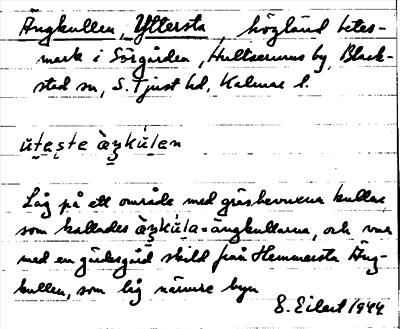 Ängkullen, Yttersta, högländ betes-
mark i Sörgården, Hultserums by, Black-
stad sn, S. Tjust hd, Kalmar l.
Låg på ett område med gräsbevuxna kullar,
som kallades = ängkullarna, och var
med en gärdesgård skild från Hemmersta Äng-
kullen, som låg närmre byn
E. Eilert 1944